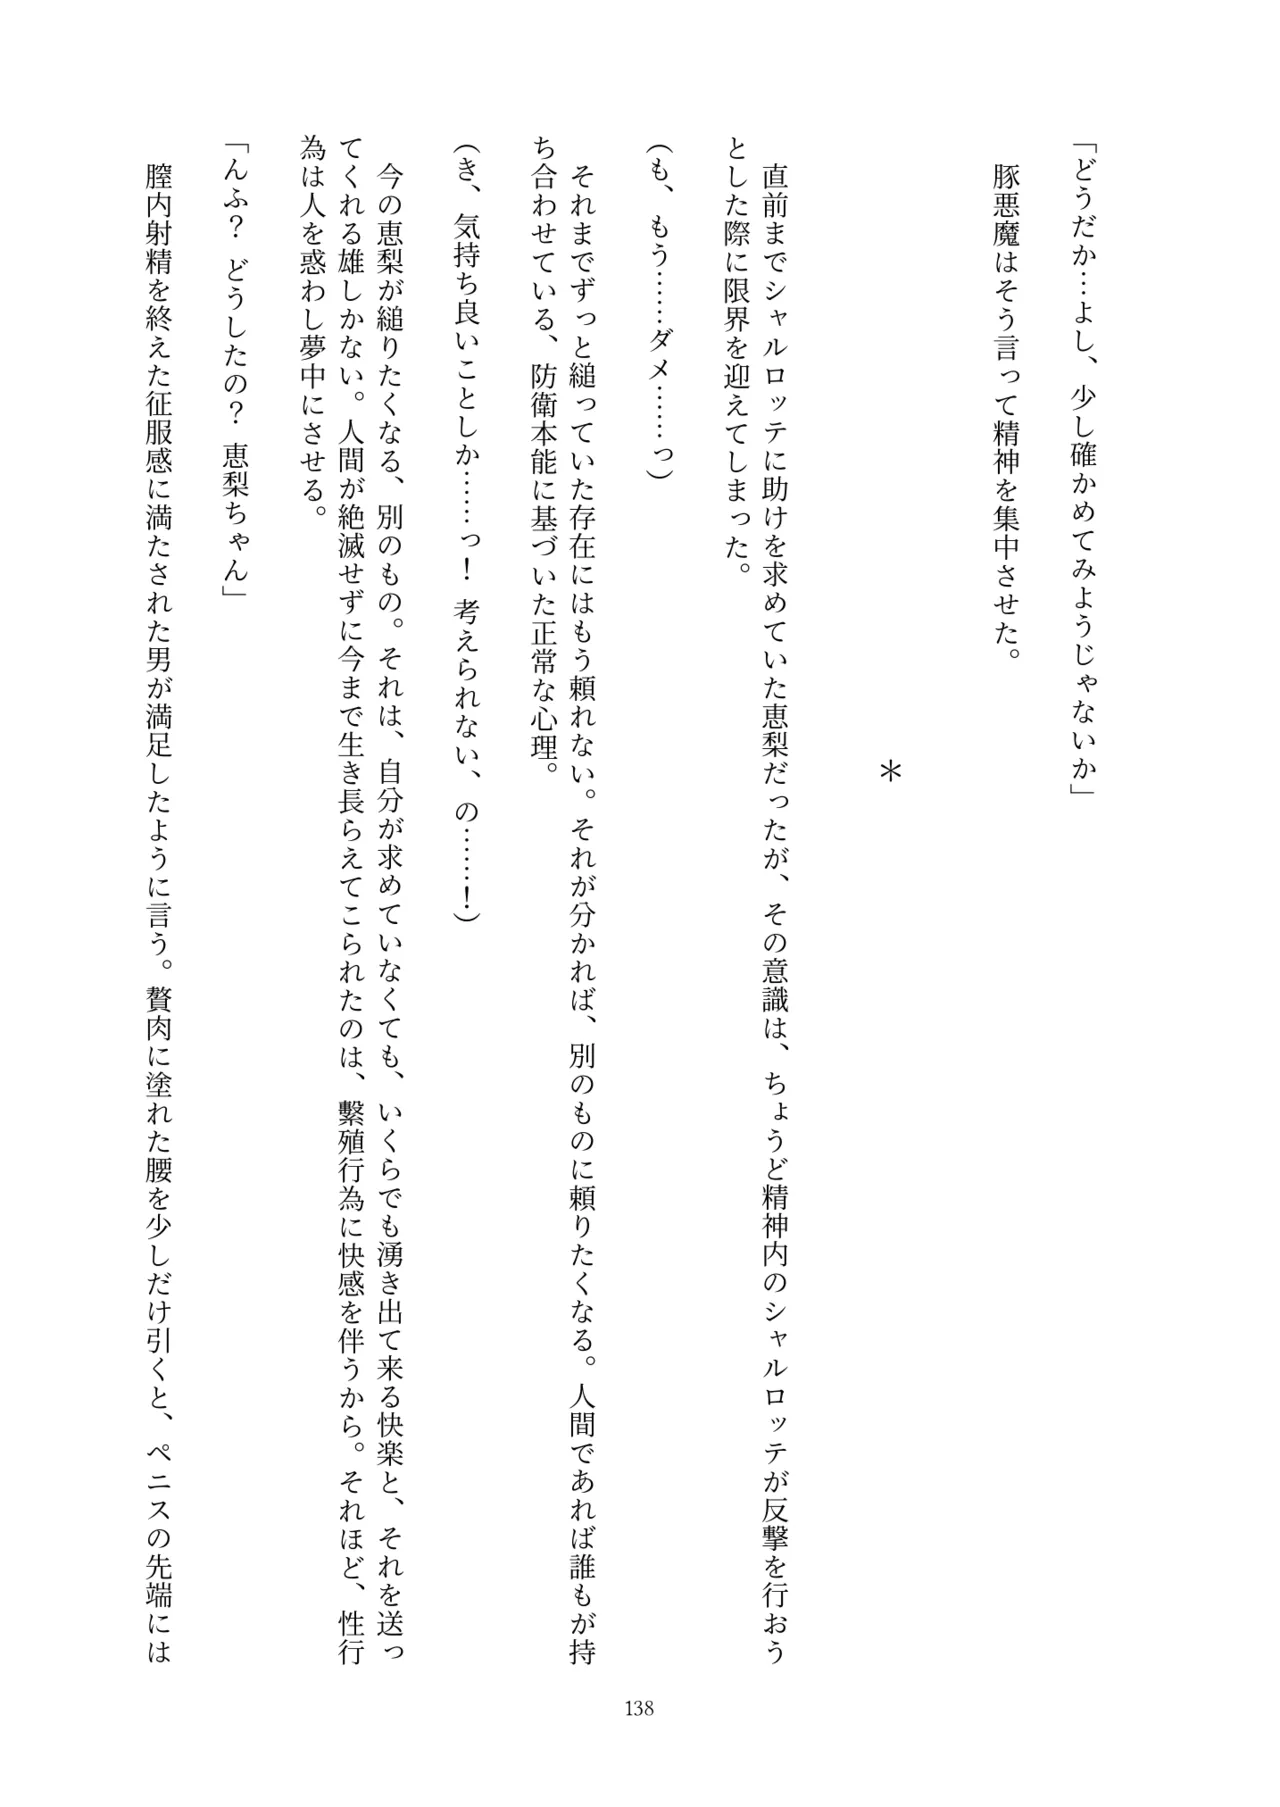 「どうだか…よし、少し確かめてみようじゃないか」
豚悪魔はそう言って精神を集中させた。
＊
直前までシャルロッテに助けを求めていた恵梨だったが、その意識は、ちょうど精神内のシャルロッテが反撃を行おう
とした際に限界を迎えてしまった。
（も、もう……ダメ……っ）
それまでずっと縋っていた存在にはもう頼れない。それが分かれば、別のものに頼りたくなる。人間であれば誰もが持
ち合わせている、防衛本能に基づいた正常な心理。
（き、気持ち良いことしか……っ！ 考えられない、の……！）
今の恵梨が縋りたくなる、別のもの。それは、自分が求めていなくても、いくらでも湧き出て来る快楽と、それを送っ
てくれる雄しかない。人間が絶滅せずに今まで生き長らえてこられたのは、繋殖行為に快感を伴うから。それほど、性行
為は人を惑わし夢中にさせる。
「んふ？ どうしたの？ 恵梨ちゃん」
膣内射精を終えた征服感に満たされた男が満足したように言う。贅肉に塗れた腰を少しだけ引くと、ペニスの先端には
138